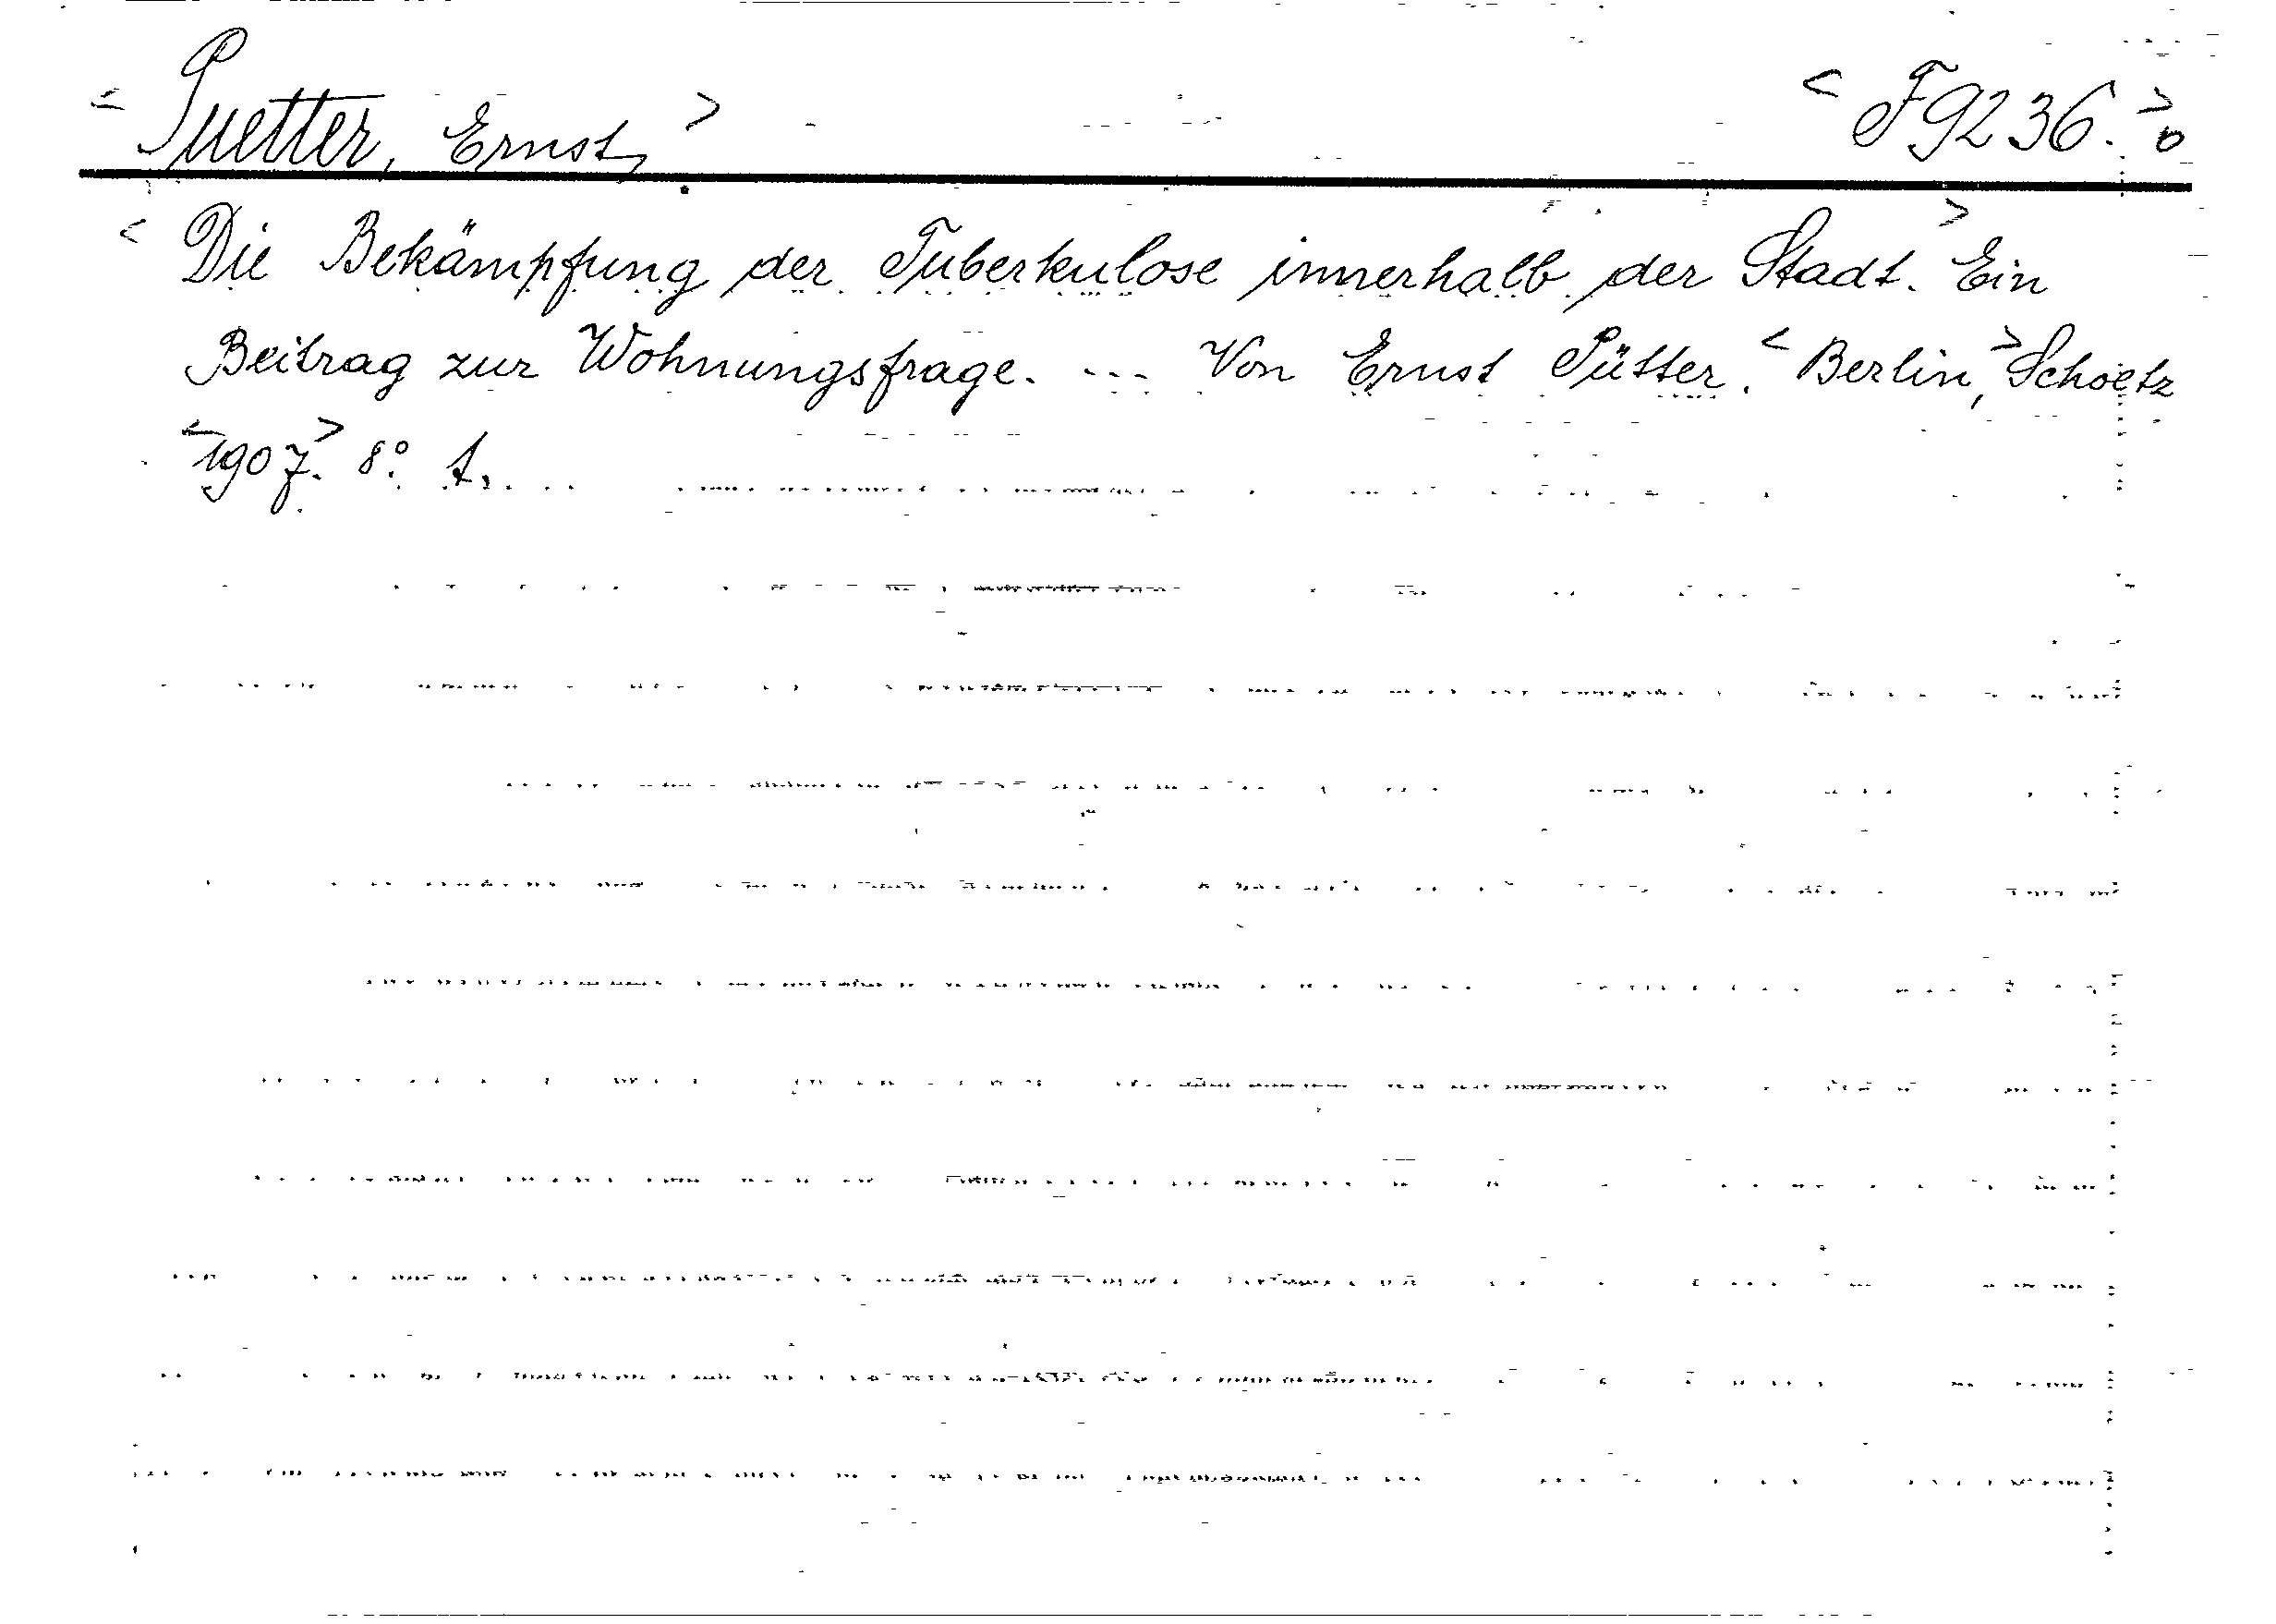 < Puetter, Ernst > < F9236. > o
< Die Bekämpfung der Tuberkulose innerhalb der Stadt. > Ein
Beitrag zur Wohnungsfrage. --- Von Ernst Pütter. < Berlin, > Schoetz
< 1907. > 8°. t.